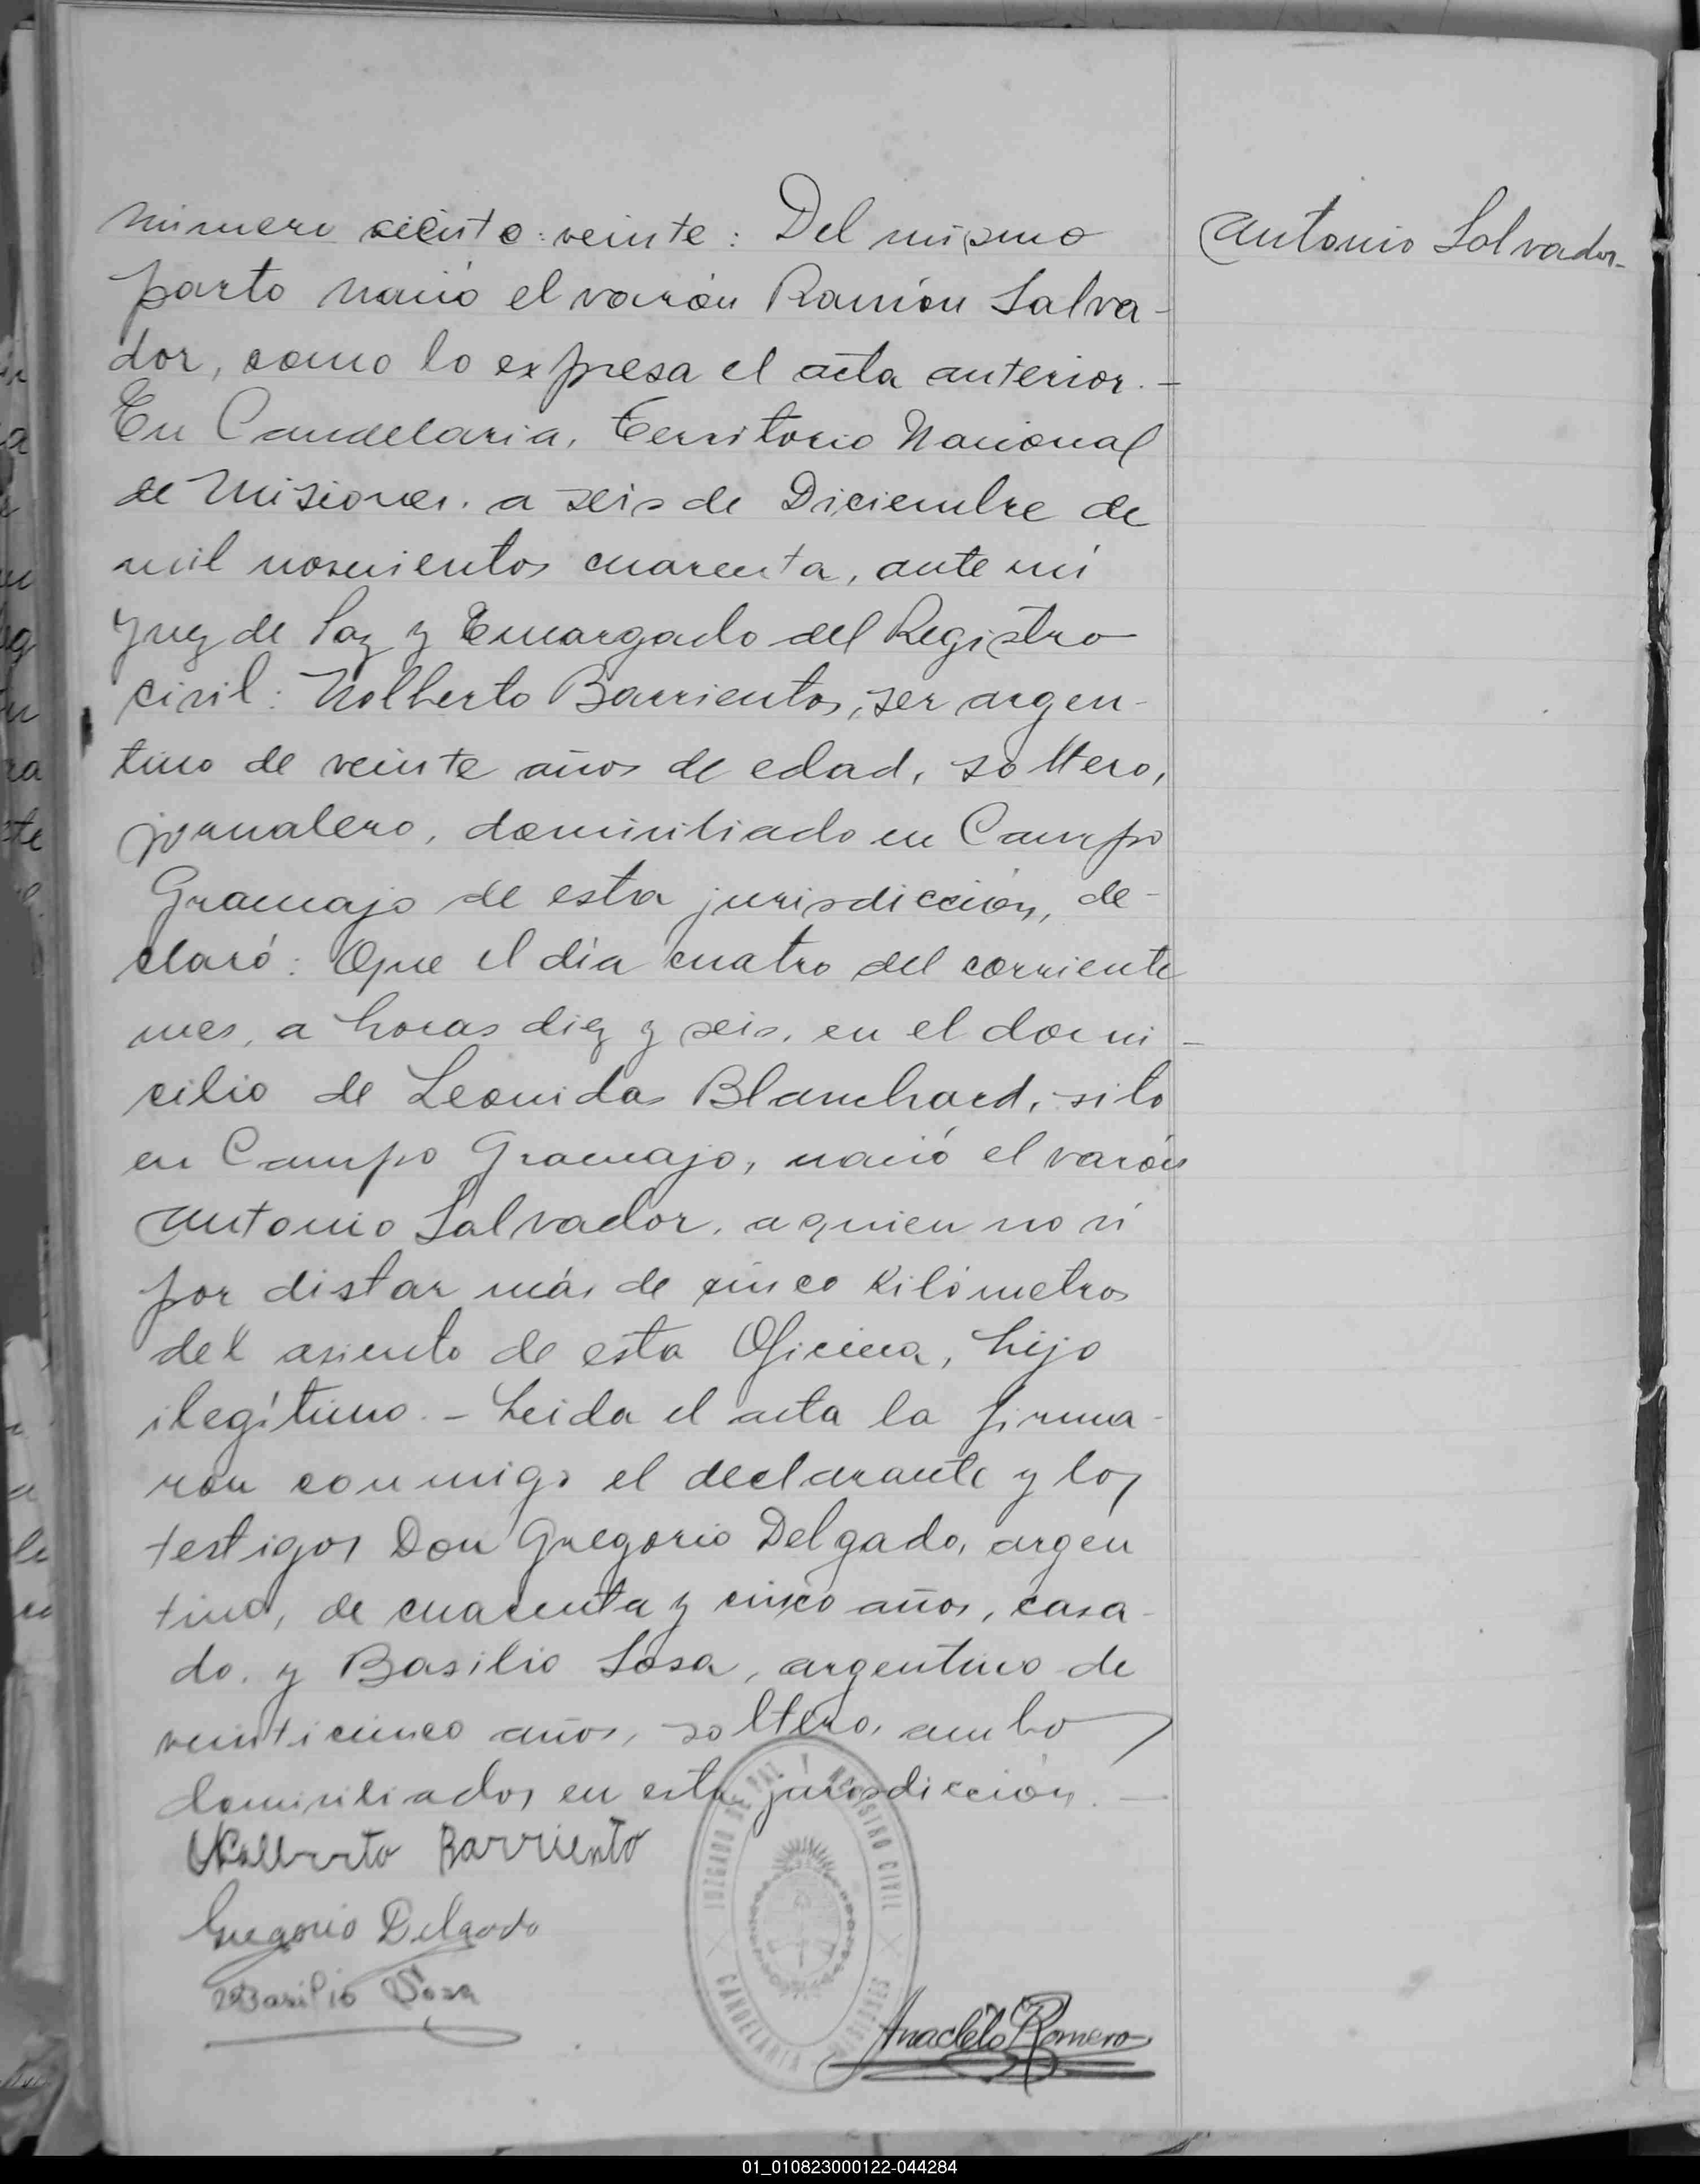 número ciento veinte: Del mismo
Antonio Salvador.
parto nació el varón Ramón Salva-
dor, como lo expresa el acta anterior.-
En Candelaria, Territorio Nacional
de Misiones. a seis de Diciembre de
mil novecientos cuarenta, ante mí
Juez de Paz y Encargado del Registro
civil: Nolberto Barrientos, ser argen-
tino de veinte años de edad, soltero,
jornalero, domiciliado en Campo
Gramajo de esta jurisdicción, de-
claró: Que el día cuatro del corriente
mes, a horas diez y seis, en el domi-
cilio de Leonidas Blanchard, sito
en Campo Gramajo, nació el varón
Antonio Salvador, a quien no ví
por distar más de cinco kilómetros
del asiento de esta Oficina, hijo
ilegítimo.- Leida el acta la firma-
ron conmigo el declarante y los
testigos Don Gregorio Delgado, argen
tino, de cuarenta y cinco años, casa-
do. y Basilio Sosa, argentino de
veinticinco años, soltero, ambo
domiciliados en esta jurisdicción.-
Nolberto Barriento
Gregorio Delgado
Basilio Sosa
JUZGADO DE PAZ Y REGISTRO CIVIL
CANDELARIA MISIONES
Anacleto Romero
01_010823000122-044284